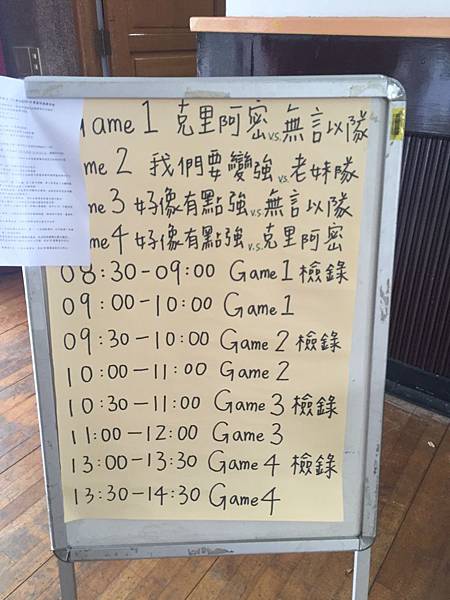 Game 1 克里阿密 v.s. 無言以隊
me 2 我們要變強 v.s. 老妹隊
me 3 好像有點強 v.s. 無言以隊
me 4 好像有點強 v.s. 克里阿密
08:30-09:00 Game 1 檢錄
09:00-10:00 Game 1
09:30-10:00 Game 2 檢錄
10:00-11:00 Game 2
10:30-11:00 Game 3 檢錄
11:00-12:00 Game 3
13:00-13:30 Game 4 檢錄
13:30-14:30 Game 4